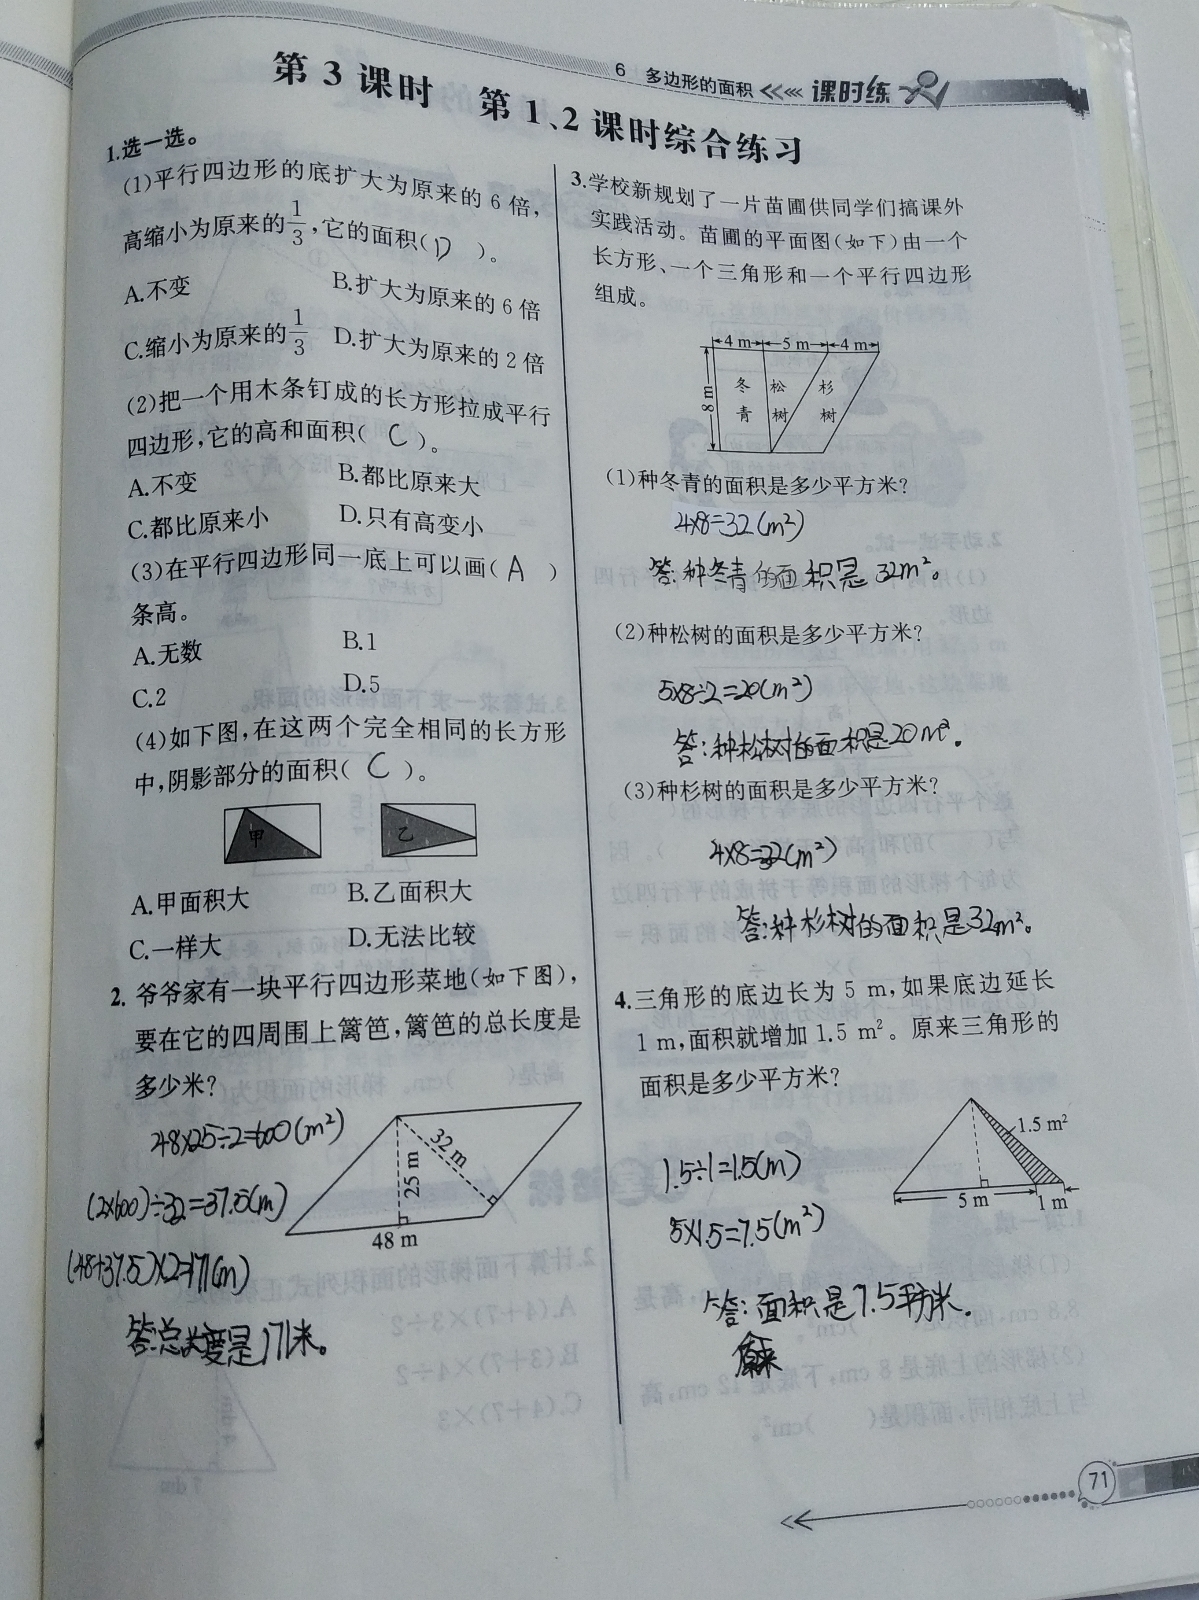 6 多边形的面积 课时练
第3课时 第1、2课时综合练习
1.选一选。
(1)平行四边形的底扩大为原来的6倍,
高缩小为原来的1/3,它的面积( D )。
A.不变 B.扩大为原来的6倍
C.缩小为原来的1/3 D.扩大为原来的2倍
(2)把一个用木条钉成的长方形拉成平行
四边形,它的高和面积( C )。
A.不变 B.都比原来大
C.都比原来小 D.只有高变小
(3)在平行四边形同一底上可以画( A )
条高。
A.无数 B.1
C.2 D.5
(4)如下图,在这两个完全相同的长方形
中,阴影部分的面积( C )。
甲 乙
A.甲面积大 B.乙面积大
C.一样大 D.无法比较
2.爷爷家有一块平行四边形菜地(如下图),
要在它的四周围上篱笆,篱笆的总长度是
多少米?
48×25÷2=600(m²)
(2×600)÷32=37.5(m)
(48+37.5)×2=171(m)
答:总长度是171米。
32 m
25 m
48 m
3.学校新规划了一片苗圃供同学们搞课外
实践活动。苗圃的平面图(如下)由一个
长方形、一个三角形和一个平行四边形
组成。
4 m 5 m 4 m
8 m
冬青 松树 杉树
(1)种冬青的面积是多少平方米?
4×8=32(m²)
答:种冬青的面积是32m²。
(2)种松树的面积是多少平方米?
5×8÷2=20(m²)
答:种松树的面积是20m²。
(3)种杉树的面积是多少平方米?
4×8=32(m²)
答:种杉树的面积是32m²。
4.三角形的底边长为5 m,如果底边延长
1 m,面积就增加1.5 m²。原来三角形的
面积是多少平方米?
1.5 m²
5 m 1 m
1.5÷1=1.5(m)
5×1.5=7.5(m²)
答:面积是7.5平方米。
原来
71